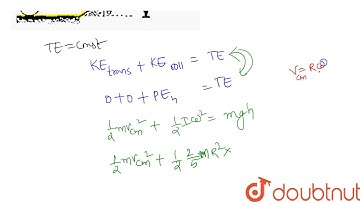 TE = Const
KE trans + KE roll = TE
0 + 0 + PE h = TE
1/2 mv²cm + 1/2 Iω² = mgh
1/2 mv²cm + 1/2 2/5 mR² x
Vcm = Rω
doubtnut